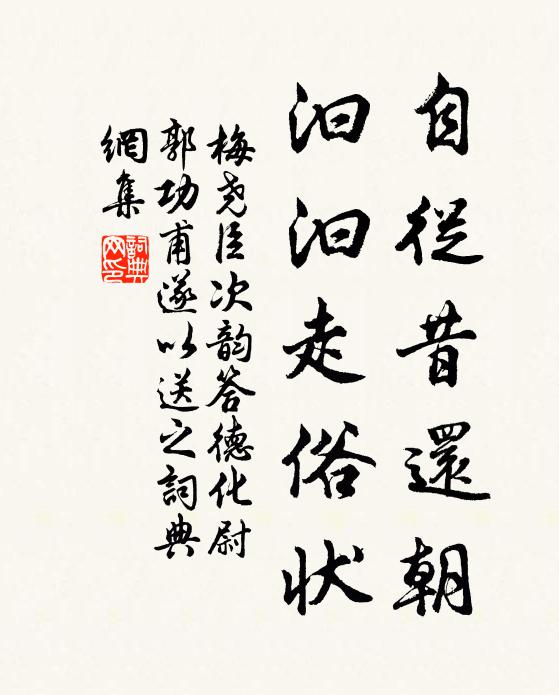 自從昔還朝
汩汩走俗状
梅尧臣次韵答德化尉
郭功甫遂以送之詞典
網集
詞典
网印